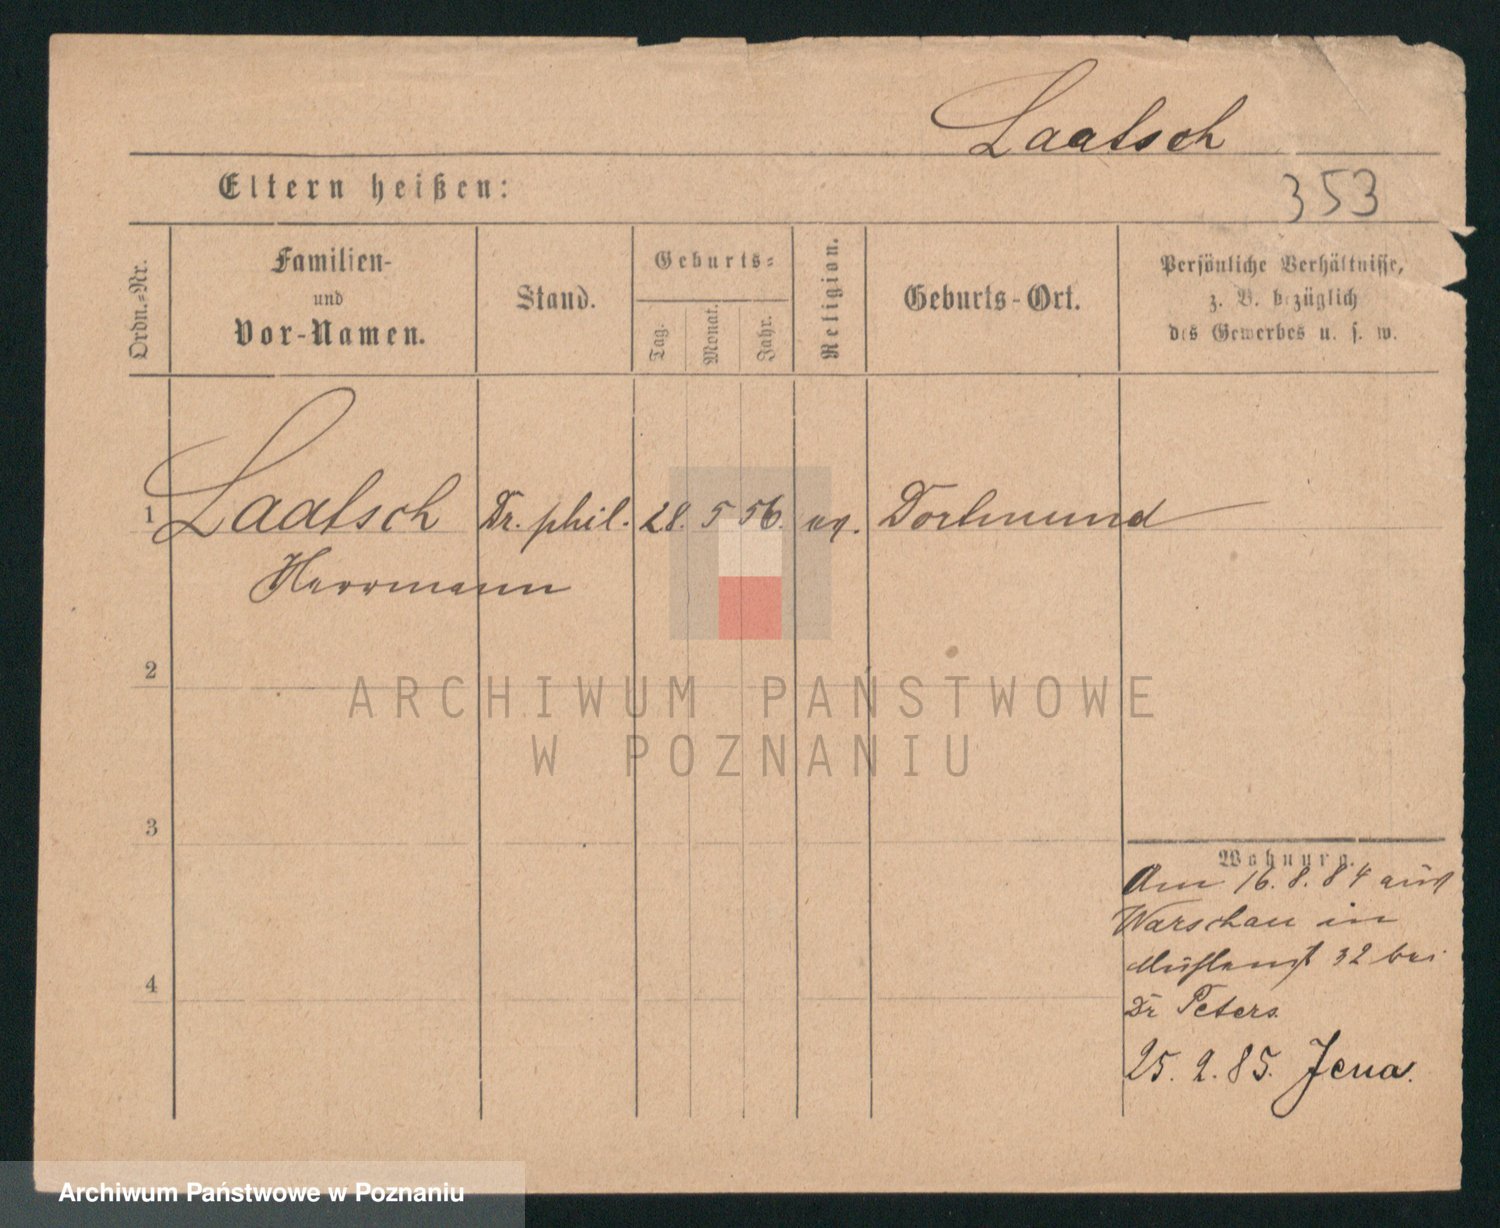 Laatsch
Eltern heißen:
353
Ordn.-Nr.
Familien-
und
Vor-Namen.
Stand.
Geburts-
Tag.
Monat.
Jahr.
Religion.
Geburts-Ort.
Persönliche Verhältnisse,
z. B. bezüglich
des Gewerbes u. s. w.
1 Laatsch Dr. phil. 28. 5 56. ev. Dortmund
Herrmann
2
ARCHIWUM PAŃSTWOWE
W POZNANIU
3
Wohnung.
Am 16. 8. 84 aus
Warschau in
32 bei
4
Dr Peters.
25. 2. 85. Jena.
Archiwum Państwowe w Poznaniu